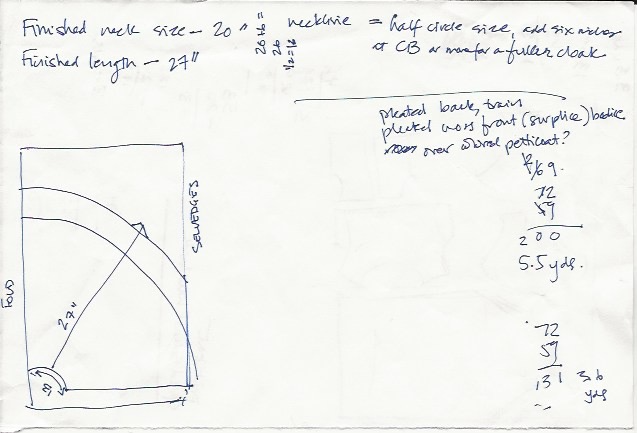 Finished neck size - 20" neckline = half circle size, add six inches
at CB or more for a fuller cloak
Finished length - 27"
20 + 6 =
26
1/2 =
pleated back, train
pleated cross front (surplice) bodice
over petticoat?
69
72
59
200
5.5 yds.
FOLD
SELVEDGES
27"
20
72
59
131 3.6
yds